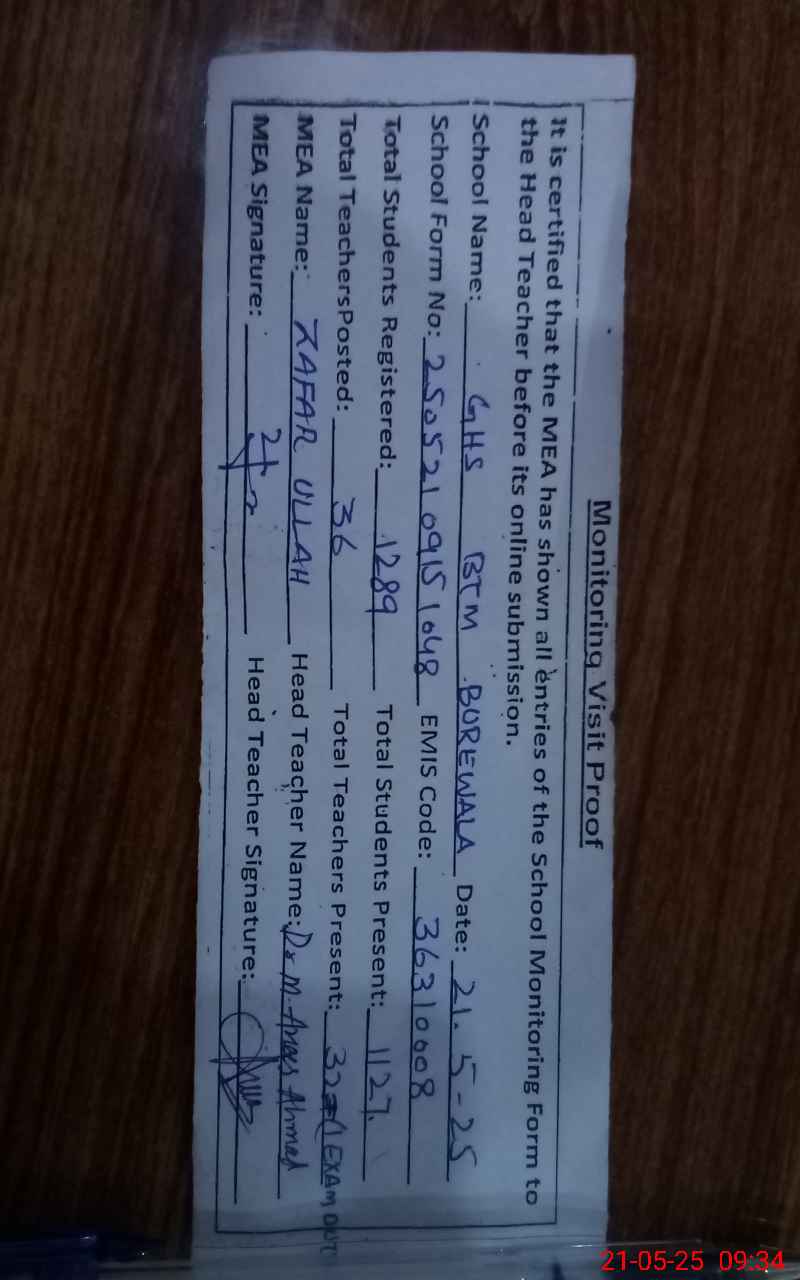 Monitoring Visit Proof
It is certified that the MEA has shown all entries of the School Monitoring Form to
the Head Teacher before its online submission.
School Name: GHS BTM BUREWALA Date: 21-5-25
School Form No: 25052109151048 EMIS Code: 36310008
Total Students Registered: 1289 Total Students Present: 1127
Total TeachersPosted: 36 Total Teachers Present: 32 (1 EXAM OUT
MEA Name: ZAFAR ULLAH Head Teacher Name: Dr M. Anaes Ahmad
MEA Signature: Head Teacher Signature:
21-05-25 09:34